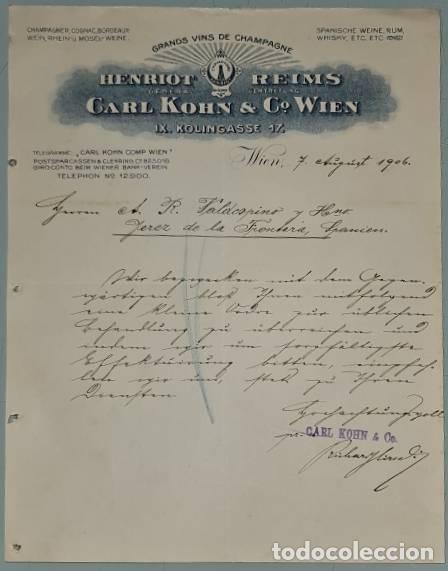 CHAMPAGNER, COGNAC, BORDEAUX
WEIN, RHEIN- U. MOSEL-WEINE.
GRANDS VINS DE CHAMPAGNE
SPANISCHE WEINE, RUM,
WHISKY, ETC. ETC.
HENRIOT REIMS
GENERAL VERTRETUNG
CARL KOHN & Co WIEN
IX. KOLINGASSE 17.
TELEGRAMME: „CARL KOHN COMP WIEN"
POSTSPARCASSEN & CLEARING
GIRO CONTO BEIM WIENER BANK-VEREIN
TELEPHON No 12900.
Wien, 7 August 1906.
Herren A. R. Valdespino y Hno.
Jerez de la Frontera, Spanien.
Wir bezwecken mit dem Gegen-
wärtigen bloß Ihnen mitfolgend
eine kleine Ordre zur üblichen
Behandlung zu überreichen und
indem wir um sorgfältigste
Effektuierung bitten, empfeh-
len wir uns, stets zu Ihren
Diensten
Hochachtungsvoll
CARL KOHN & Co.
todocoleccion.net